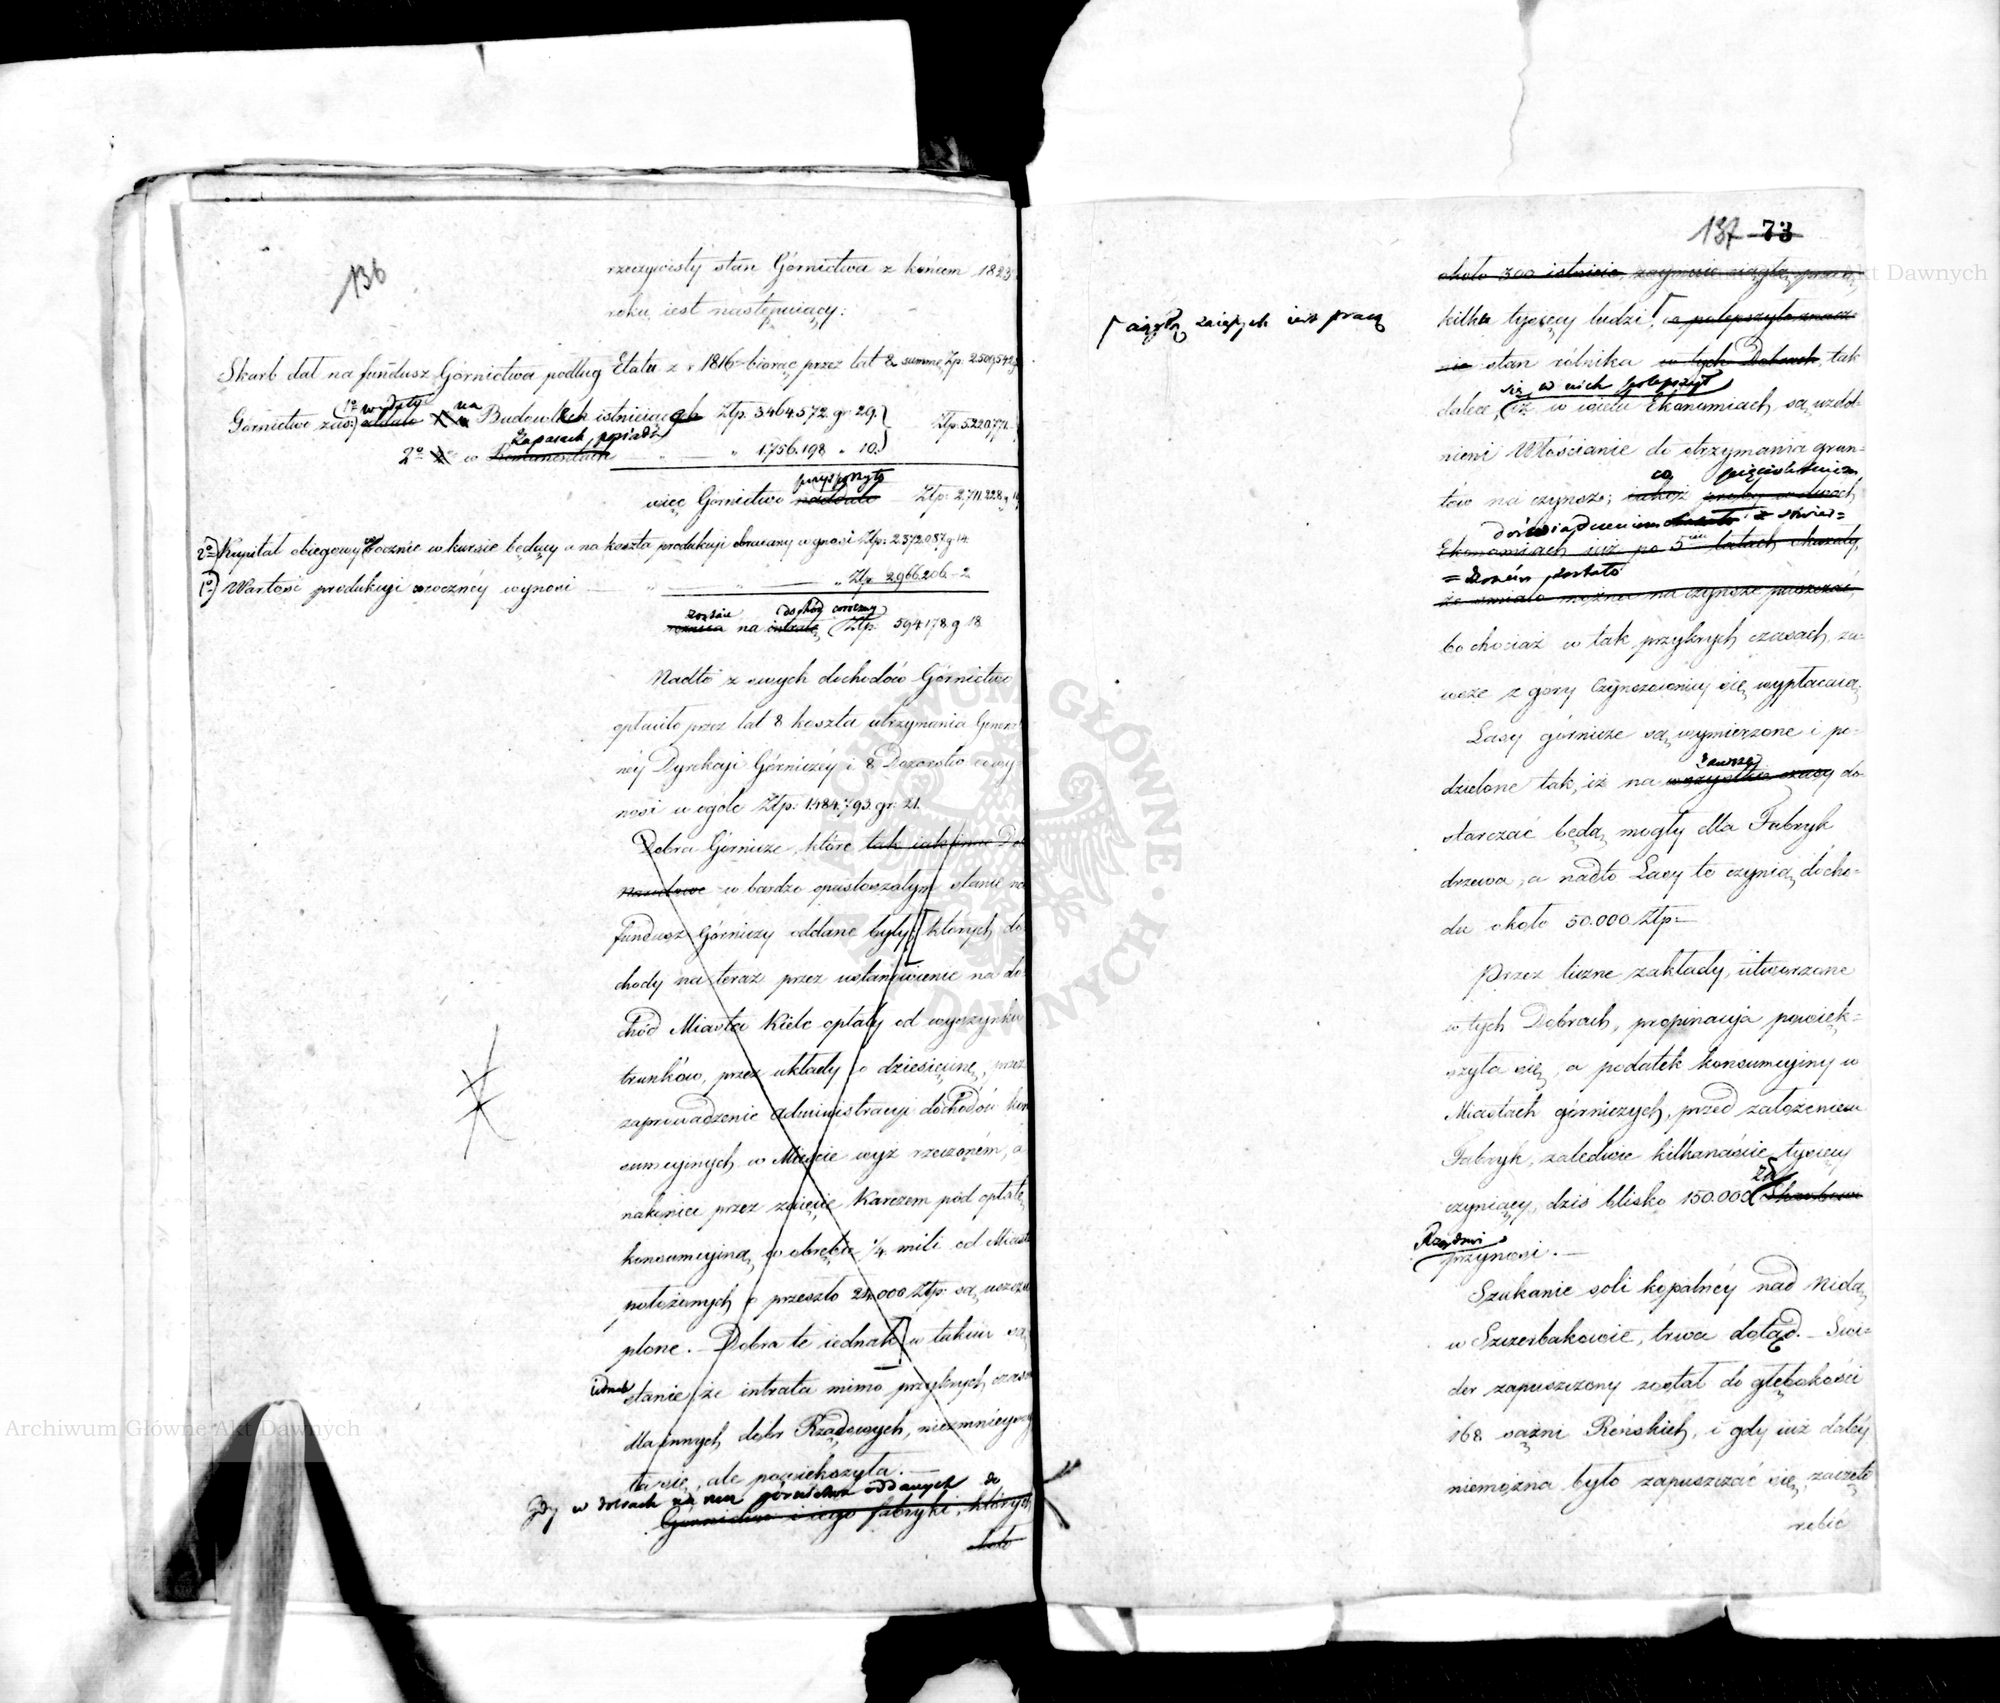 136
rzeczywisty stan Górnictwa z końcem 1823
roku iest następuiący:
Skarb dał na fundusz Górnictwa podług Etatu z r. 1816 biorąc przez lat 8 summę Złp. 2.509,542
Górnictwo zaś 1º w na Budowlach istnieiących Złp. 3.464.572 gr. 29. Złp. 5.220.771
2º w zapasach posiada „ 1.756.198 „ 10.
więc Górnictwo przysporzyło Złp: 2.711.228 g
2º Kapitał obiegowy rocznie w kursie będący a na koszta produkcyi obracany wynosi Złp: 2.372.087 g 14
1º Wartość produkcyi roczney wynosi „ „ Złp 2.966.206 - 2
na intratę dochód roczny Złp. 594.178 g 18
Nadto z swych dochodów Górnictwo
opłaciło przez lat 8 koszta utrzymania General
néy Dyrekcyi Górniczéy i 8 Dozorstw co wy
nosi w ogóle Złp: 1.484.793. gr: 21.
Dobra Górnicze, które tak iak inne Do
Narodowe w bardzo opustoszałym stanie na
fundusz Górniczy oddane były, których do
chody na teraz przez ustanowienie na do
chód Miasta Kielc opłaty od wyszynku
trunków, przez układy o dziesięcinę, przez
zaprowadzenie administracyi dochodów kon
sumcyinych w Mieście wyż rzeczoném, a
nakoniec przez zajęcie Karczem pod opłatę
konsumcyiną w obrębie ¼ mili od Miasta
położonych o przeszło 24.000 Złp: są uszczu
plone. — Dobra te iednak w takim są
stanie, że intrata mimo przykrych czasów
dla innych dóbr Rządowych, niezmnieyszy
ła się, ale powiększyła. —
Gdy w dobrach na rzecz górnictwa oddanych do
Górnictwo i iego fabryki, których
około
137 73
około 300 istnieie, zaymuie ciągłą pracą
ciągłą zaiętych iest pracą
kilka tysięcy ludzi, co polepszyło znacz
nie stan rólnika w tych Dobrach, tak
się w nich polepszył
dalece, iż w wielu Ekonomiach, są uzdol-
nieni Włościanie do otrzymania grun-
co pięcioletniem
tów na czynsze; iakoż próby w dwóch
doświadczeniem stwier=
Ekonomiach iuż po 5ciu latach okazały,
= dzonem zostało
że śmiało można na czynsze puszczać,
bo chociaż w tak przykrych czasach, za-
wsze z gory Czynszownicy się wypłacaią;
Lasy górnicze są wymierzone i po-
zawsze
dzielone tak, iż na wszystkie czasy do-
starczać będą mogły dla Fabryk
drzewa, a nadto Lasy te czynią docho-
du około 50.000 Złp. —
Przez liczne zakłady, utworzone
w tych Dobrach, propinacya powięk=
szyła się, a podatek konsumcyiny w
Miastach górniczych, przed założeniem
Fabryk, zaledwie kilkanaście tysięcy
Zł
czyniący, dziś blisko 150.000 Skarbowi
Rządowi
przynosi. —
Szukanie soli kopalnéy nad Nidą,
w Szczerbakowie, trwa dotąd. — Świ-
der zapuszczony został do głębokości
168 sążni Reńskich, i gdy iuż daléy
niemożna było zapuszczać się, zaczęto
robić
Archiwum Główne Akt Dawnych
ARCHIWUM GŁÓWNE AKT DAWNYCH
Akt Dawnych